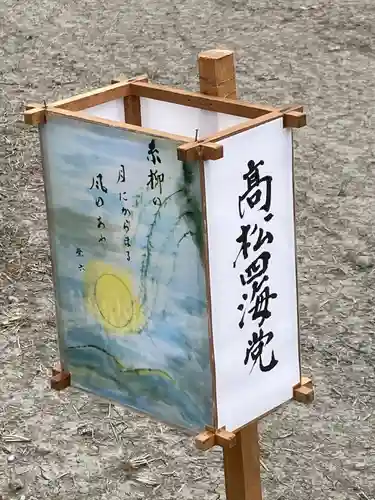 糸柳の
月にからまる
風のあや
髙松四海党